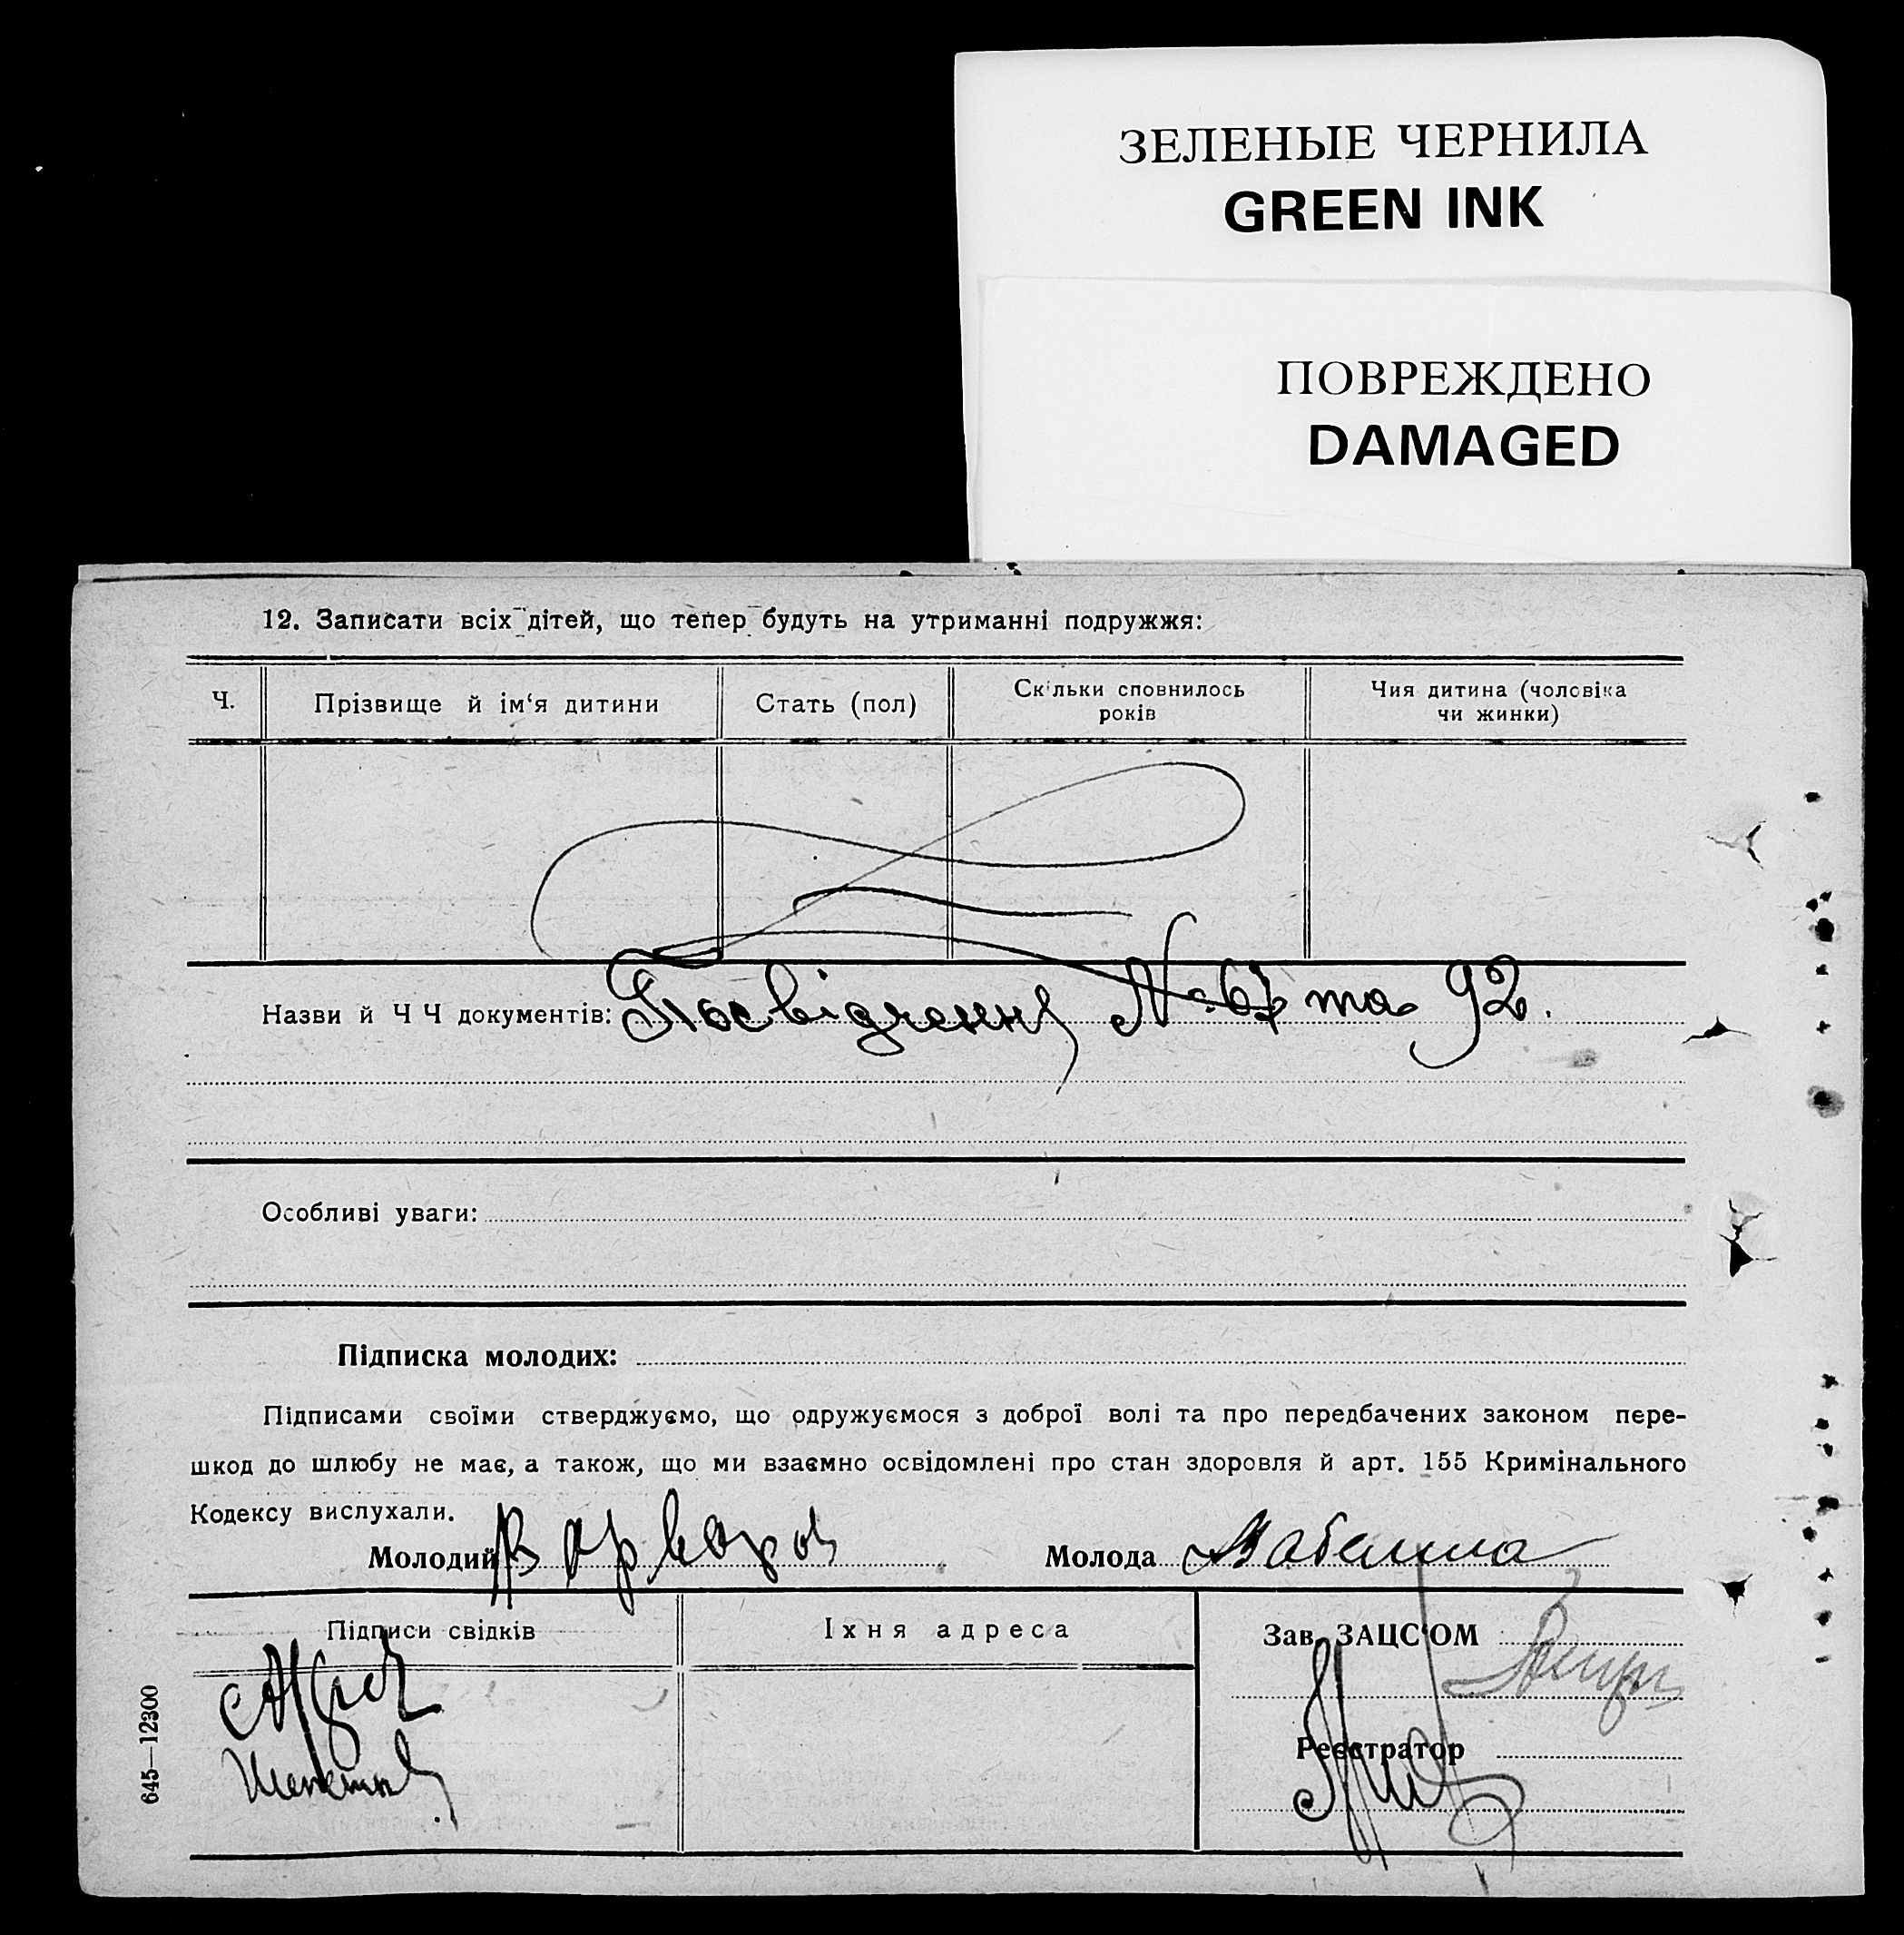 ЗЕЛЕНЫЕ ЧЕРНИЛА
GREEN INK
ПОВРЕЖДЕНО
DAMAGED
12. Записати всіх дітей, що тепер будуть на утриманні подружжя:
Ч. Прізвище й ім‘я дитини Стать (пол) Скільки сповнилось років Чия дитина (чоловіка чи жинки)
Назви й Ч Ч документів: Посвідчення № 67 та 92.
Особливі уваги:
Підписка молодих:
Підписами своїми стверджуємо, що одружуємося з доброї волі та про передбачених законом пере-
шкод до шлюбу не має, а також, що ми взаємно освідомлені про стан здоровля й арт. 155 Кримінального
Кодексу вислухали.
Молодий Варваров Молода
Підписи свідків Їхня адреса Зав. ЗАЦС‘ОМ
Реєстратор
645—12300